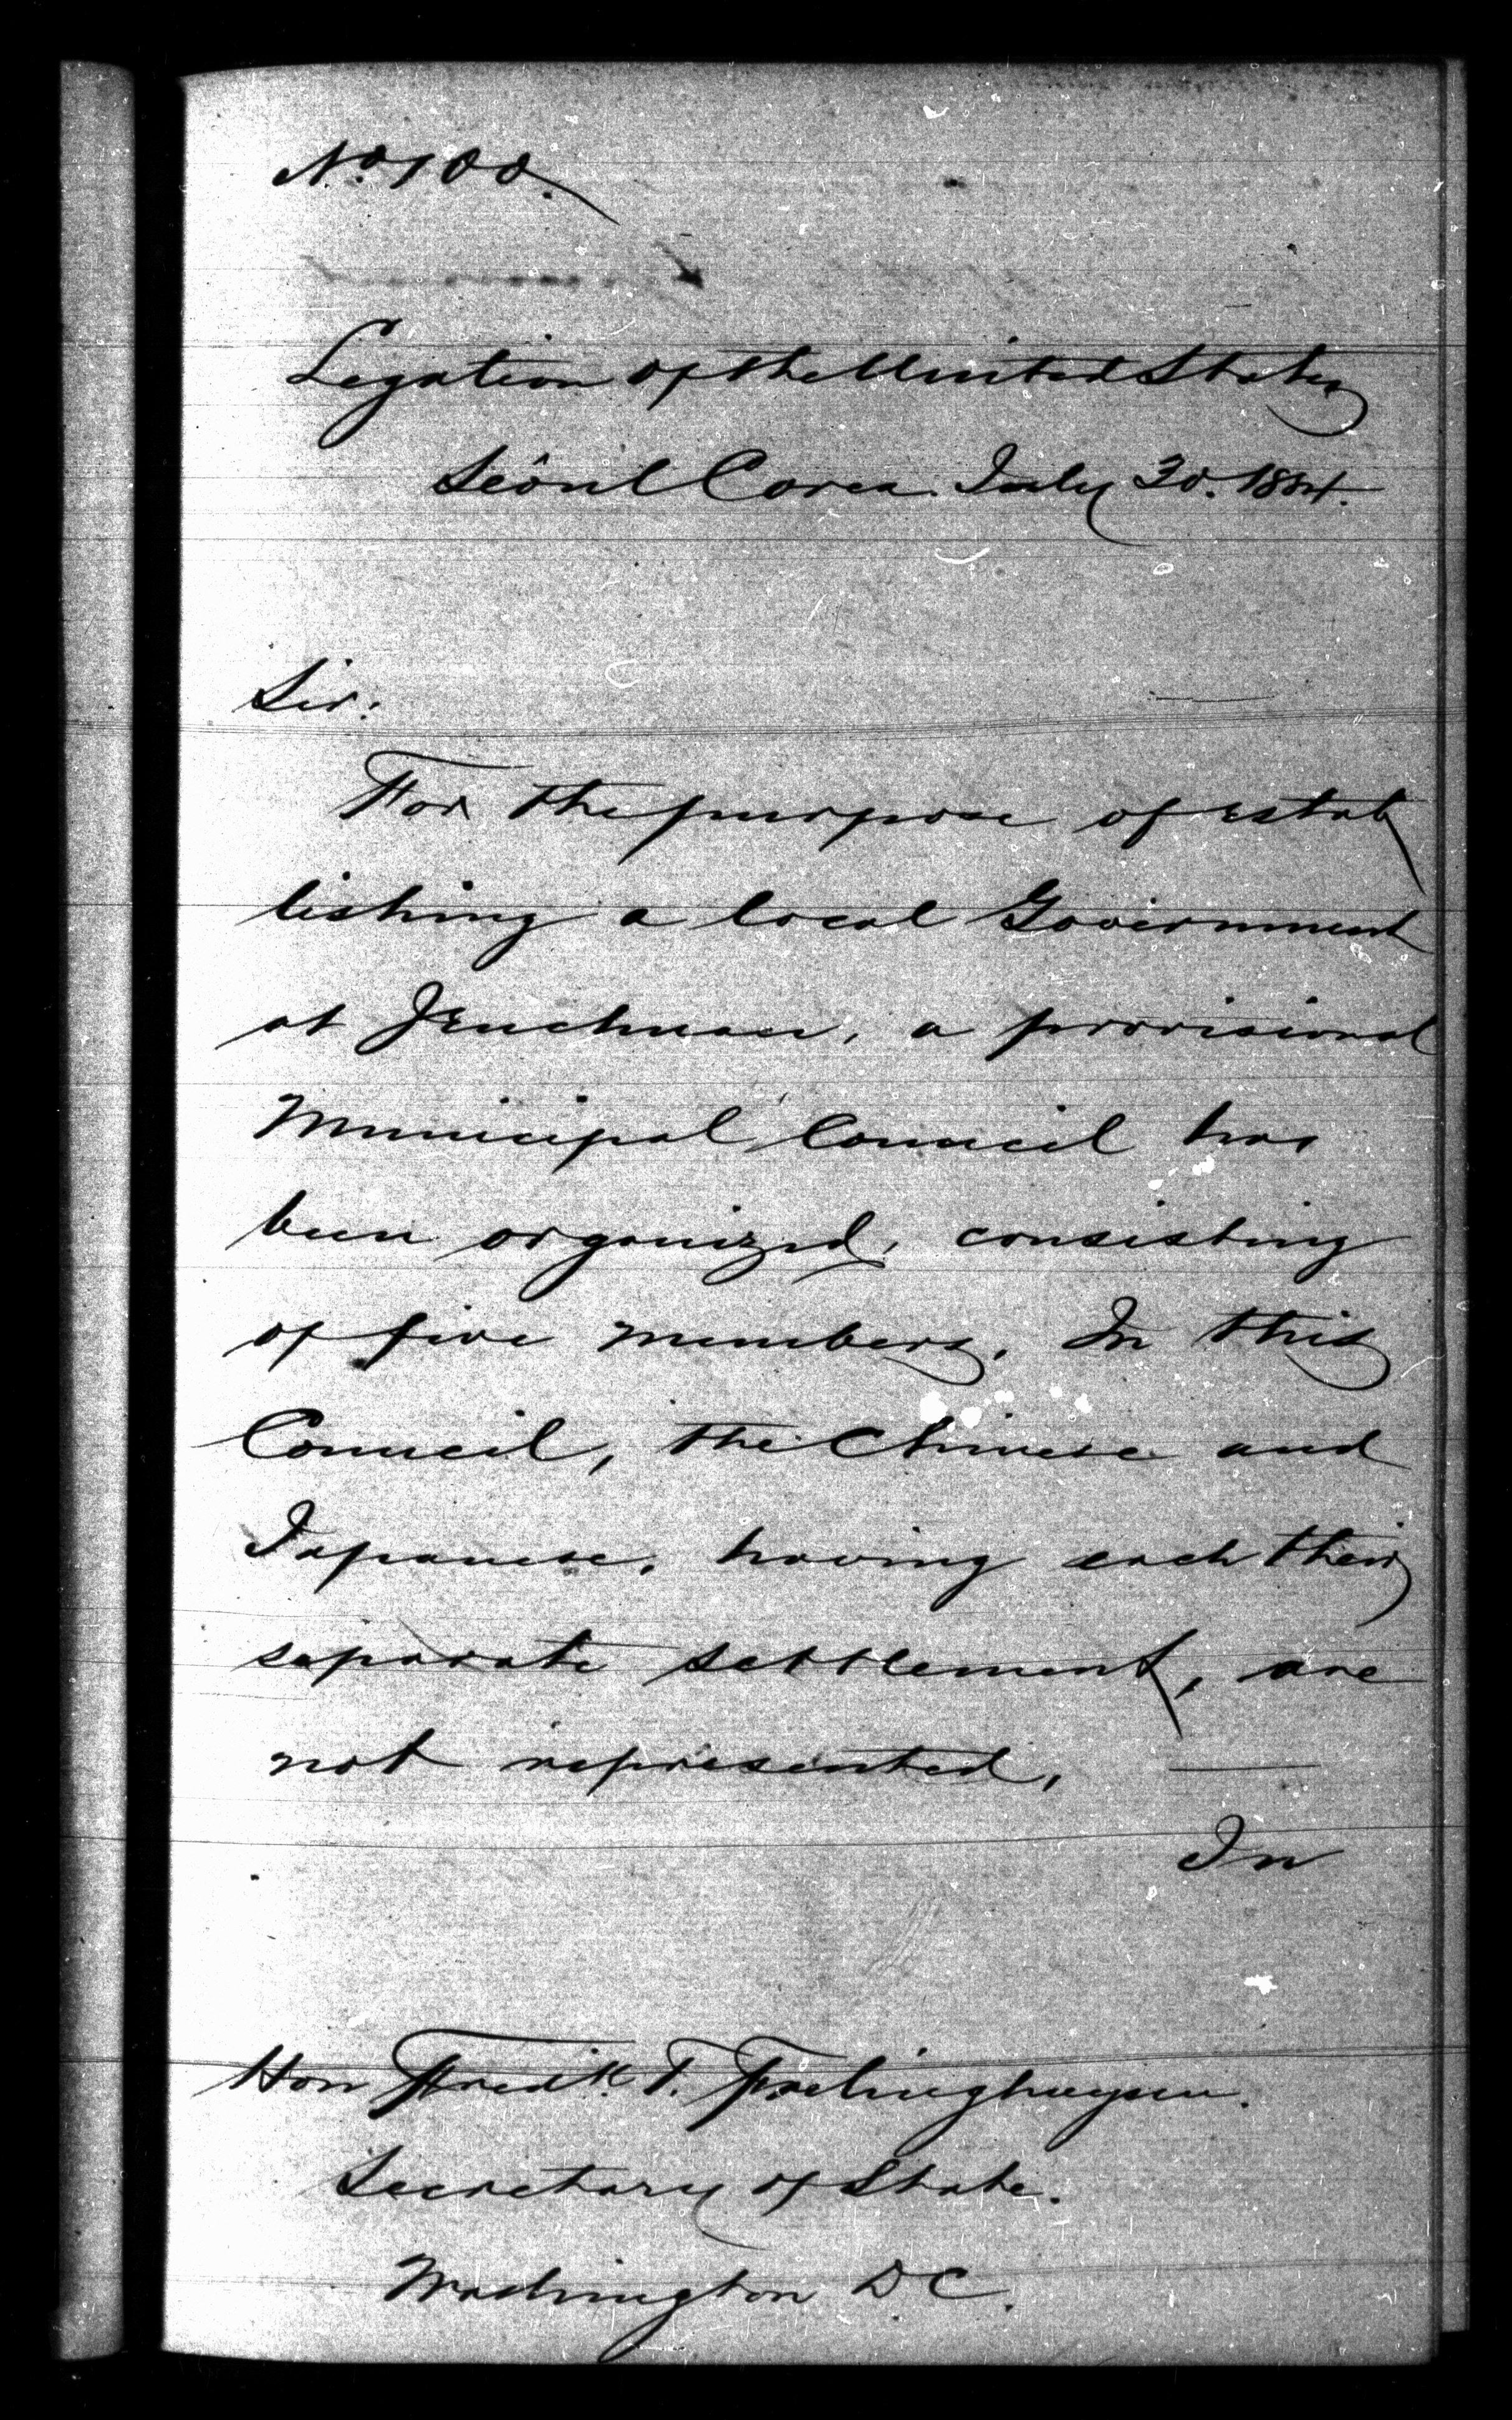 No. 100.
Legation of the United States
Seôul Corea. July 30. 1884.
Sir:
For the purpose of estab
lishing a local Government
at Jenchuan, a provisional
Municipal Council has
been organized, consisting
of five members. In this
Council, the Chinese and
Japanese, having each their
separate settlement, are
not represented.
In
Hon Fredk. T. Frelinghuysen.
Secretary of State.
Washington D.C.